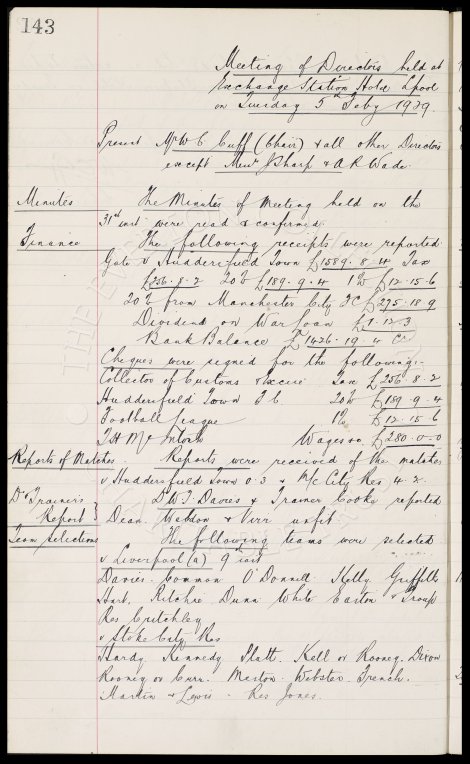 143
Meeting of Directors held at
Exchange Station Hotel Lpool
on Tuesday 5th Feby 1929.
Present Mr W C Cuff (Chair) & all other Directors
except Messrs J Sharp & A R Wade.
Minutes The Minutes of Meeting held on the
31st inst were read & confirmed.
Finance The following receipts were reported
Gate v Huddersfield Town £1589.8.4 Tax
£256.8.2 20% £189.9.4 1% £12.15.6
20% from Manchester City FC £275.18.9
Dividend on War Loan £1.12.3
Bank Balance £1426.19.4 Cr
Cheques were signed for the following:-
Collector of Customs & Excise Tax £256.8.2
Huddersfield Town F C. 20% £189.9.4
Football League 1% £12.15.6
T H McIntosh Wages £280.0.0
Reports of Matches. Reports were received of the matches
v Huddersfield Town 0.3 & M/c City Res 4.2.
Dr & Trainers Dr W J Davies & Trainer Cooke reported
Report } Dean. Weldon & Virr unfit
Team Selections The following teams were selected
v Liverpool (a) 9th inst
Davies. Common O'Donnell Kelly Griffiths
Hart. Ritchie Dunn White Easton & Troup
Res Critchley
v Stoke City Res
Hardy. Kennedy Platt. Kell or Rooney. Dixon
Rooney or Curr. Meston. Webster. French.
Martin & Lewis. Res Jones.